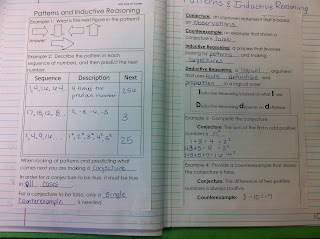 Patterns and Inductive Reasoning
Example 1: What is the next figure in the pattern?
Answer:
Example 2: Describe the pattern in each
sequence of numbers, and then predict the next
number.
Sequence Description Next
1, 4, 16, 64 4 times the previous number 256
17, 15, 12, 8 -2, -3, -4, -5 3
1, 4, 9, 16 1², 2², 3², 4², 5² 25
When looking at patterns and predicting what
comes next you are making a conjecture.
In order for a conjecture to be true, it must be true
in all cases
For a conjecture to be false, only a single
counterexample is needed.
Patterns & Inductive Reasoning
Conjecture: an unproven statement that is based
on observations
Counterexample: an example that shows a
conjecture is false
Inductive Reasoning: a process that involves
looking for patterns and making
conjectures
Deductive Reasoning: a logical argument
that uses facts, definitions,
properties in a logical order
Inductive Reasoning is based on what I see
Deductive Reasoning depends on definitions
Example 3: Complete the conjecture
Conjecture: The sum of the first n odd positive
numbers is n²
1+3 = 4 = 2²
1+3+5 = 9 = 3²
1+3+5+7 = 16 = 4²
Example 4: Provide a counterexample that shows
the conjecture is false.
Conjecture: The difference of two positive
numbers is always positive.
Counterexample: 3-10=-7